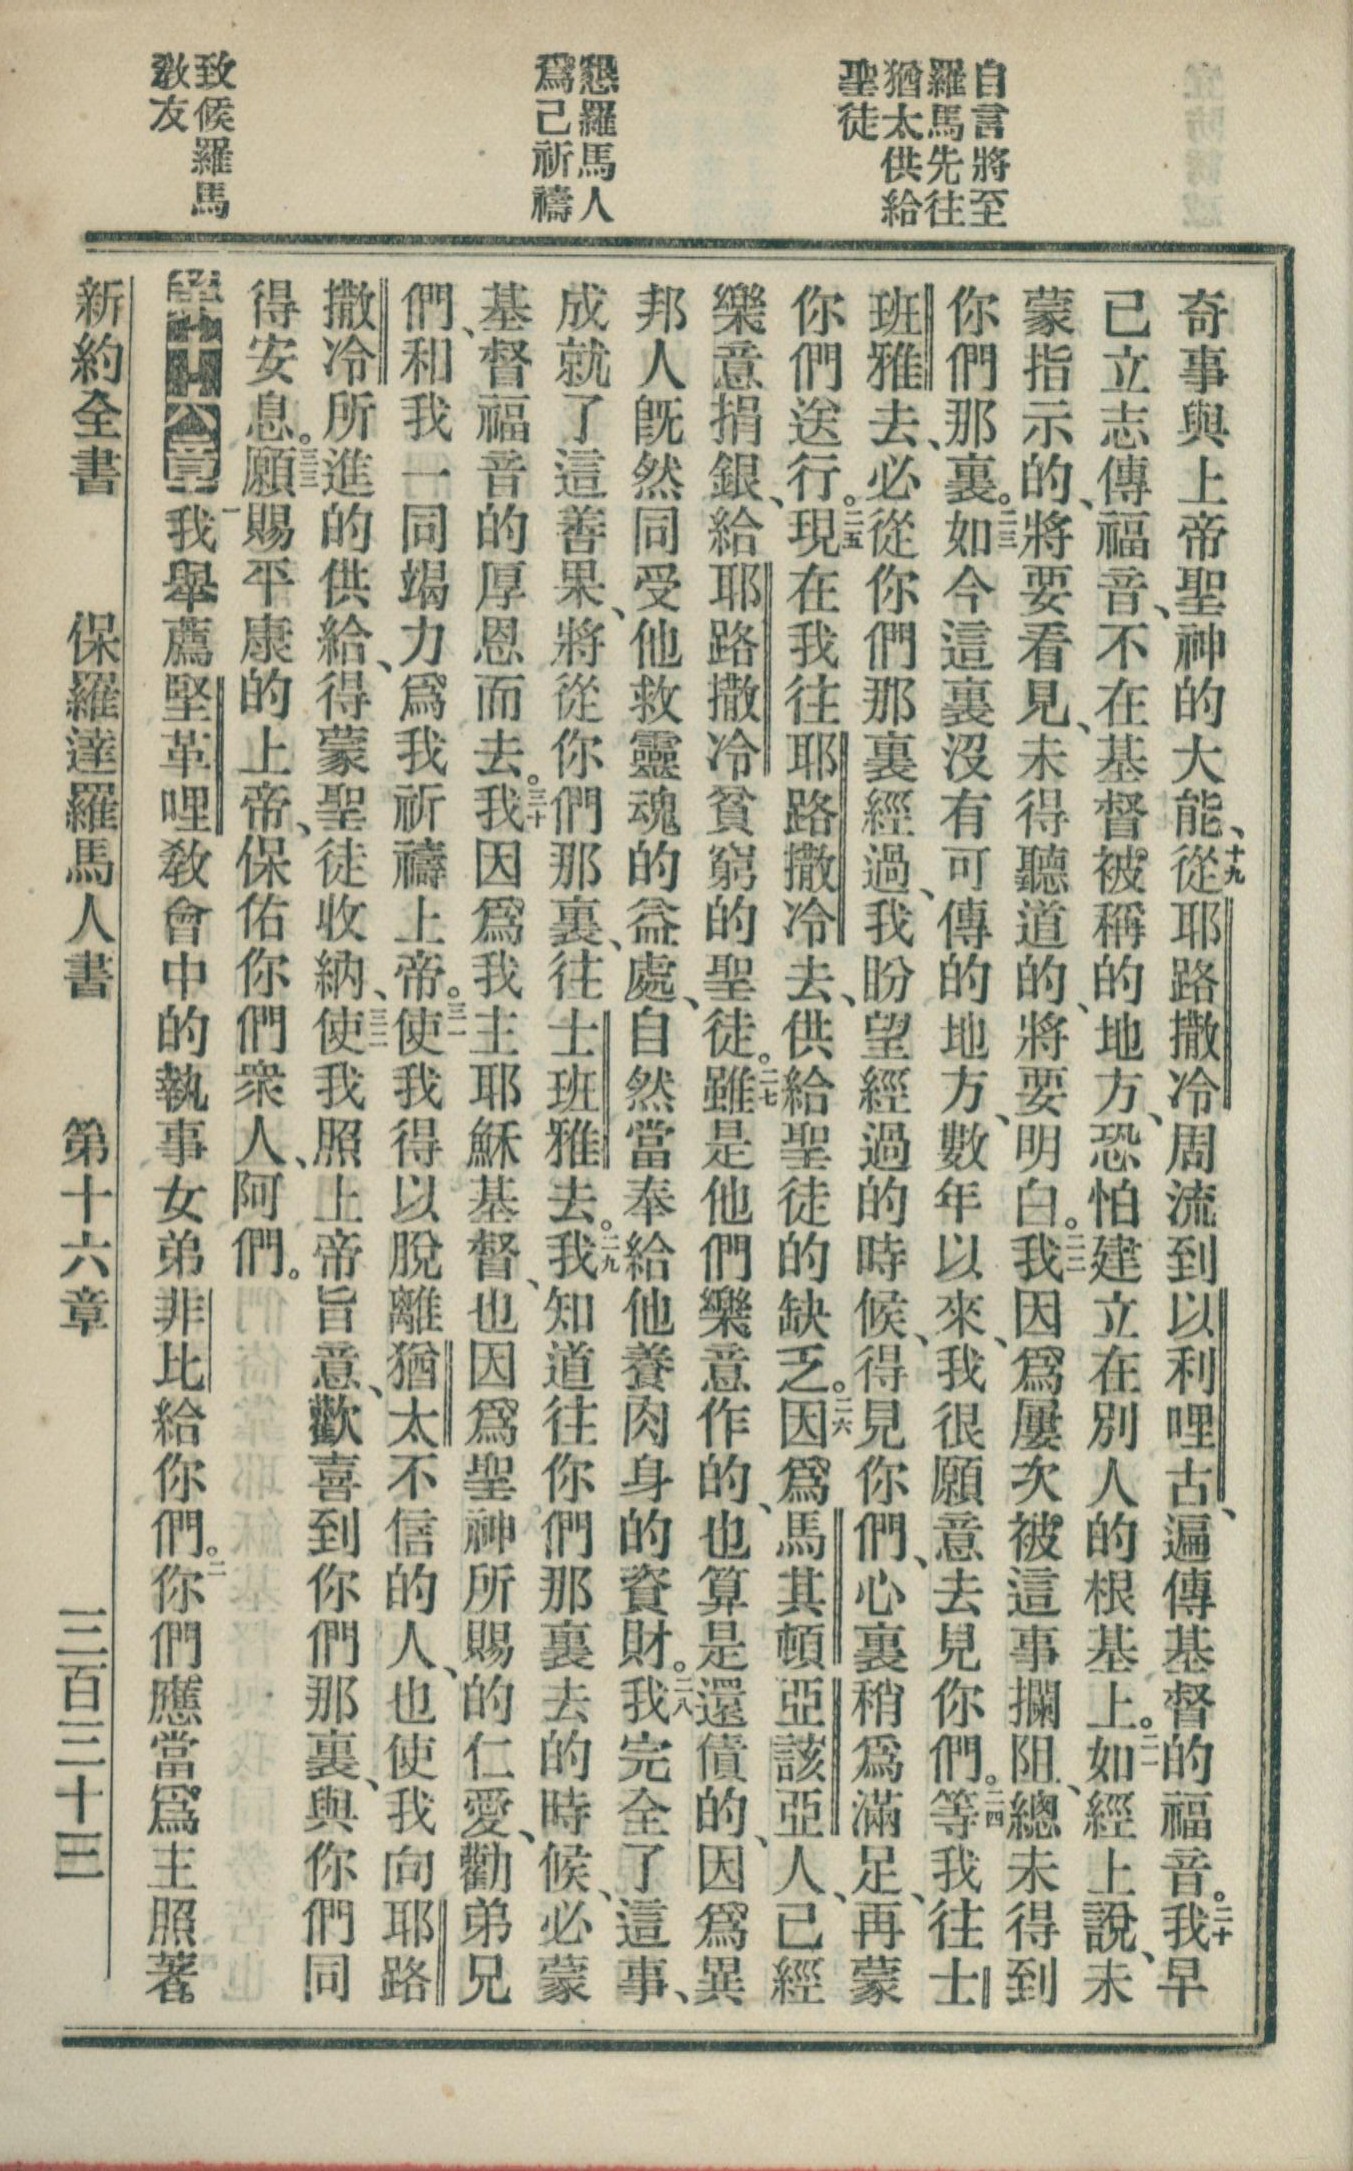 自言將至
羅馬先往
猶太供給
聖徒
懇羅馬人
爲己祈禱
致候羅馬
敎友
奇事與上帝聖神的大能、十九從耶路撒冷周流到以利哩古、遍傳基督的福音。二十我早
已立志傳福音、不在基督被稱的地方、恐怕建立在別人的根基上。二一如經上說、未
蒙指示的、將要看見、未得聽道的、將要明白。二二我因爲屢次被這事攔阻、總未得到
你們那裏。二三如今這裏沒有可傳的地方、數年以來、我很願意去見你們。二四等我往士
班雅去、必從你們那裏經過、我盼望經過的時候、得見你們、心裏稍爲滿足、再蒙
你們送行。二五現在我往耶路撒冷去、供給聖徒的缺乏。二六因爲馬其頓亞該亞人、已經
樂意捐銀、給耶路撒冷貧窮的聖徒。二七雖是他們樂意作的、也算是還債的、因爲異
邦人旣然同受他救靈魂的益處、自然當奉給他養肉身的資財。二八我完全了這事、
成就了這善果、將從你們那裏、往士班雅去。二九我知道往你們那裏去的時候、必蒙
基督福音的厚恩而去。三十我因爲我主耶穌基督、也因爲聖神所賜的仁愛、勸弟兄
們、和我一同竭力爲我祈禱上帝。三一使我得以脫離猶太不信的人、也使我向耶路
撒冷所進的供給、得蒙聖徒收納、三二使我照上帝旨意、歡喜到你們那裏、與你們同
得安息。三三願賜平康的上帝、保佑你們衆人、阿們。
第十六章一我舉薦堅革哩敎會中的執事女弟非比給你們。二你們應當爲主照著
新約全書 保羅達羅馬人書 第十六章 三百三十三